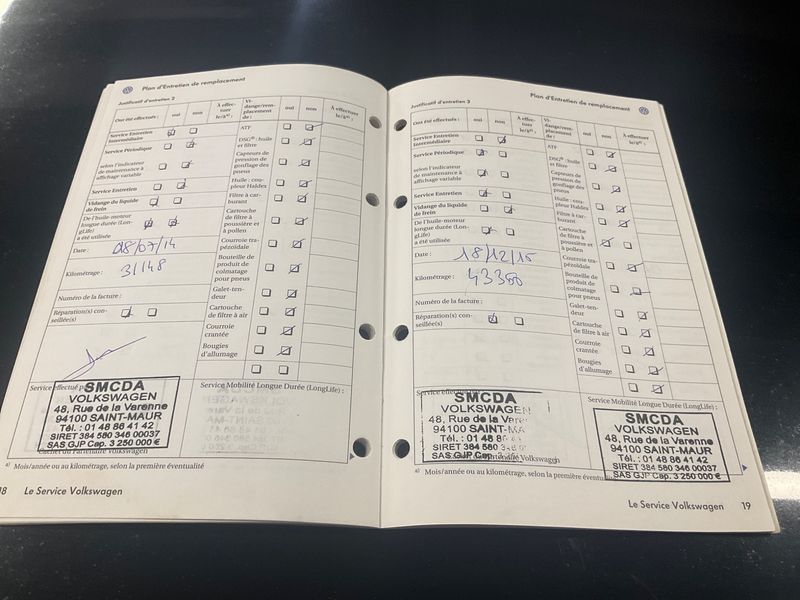 Plan d'Entretien de remplacement
Justificatif d'entretien 2
Ont été effectués :
oui
non
À effec-
tuer
le/à a) :
Vi-
dange/rem-
placement
de :
oui
non
À effectuer
le/à a) :
Service Entretien
Intermédiaire
Service Périodique
selon l'indicateur
de maintenance à
affichage variable
Service Entretien
Vidange du liquide
de frein
De l'huile-moteur
longue durée (Lon-
gLife)
a été utilisée
Date :
08/07/14
Kilométrage :
31148
Numéro de la facture :
Réparation(s) con-
seillée(s)
ATF
DSG® : huile
et filtre
Capteurs de
pression de
gonflage des
pneus
Huile : cou-
pleur Haldex
Filtre à car-
burant
Cartouche
de filtre à
poussière et
à pollen
Courroie tra-
pézoïdale
Bouteille de
produit de
colmatage
pour pneus
Galet-ten-
deur
Cartouche
de filtre à air
Courroie
crantée
Bougies
d'allumage
Service effectué par
SMCDA
VOLKSWAGEN
48, Rue de la Varenne
94100 SAINT-MAUR
Tél. : 01 48 86 41 42
SIRET 384 580 346 00037
SAS GJP Cap. 3 250 000 €
Cachet du Partenaire Volkswagen
Service Mobilité Longue Durée (LongLife) :
a) Mois/année ou au kilométrage, selon la première éventualité
18 Le Service Volkswagen
Plan d'Entretien de remplacement
Justificatif d'entretien 3
Ont été effectués :
oui
non
À effec-
tuer
le/à a) :
Vi-
dange/rem-
placement
de :
oui
non
À effectuer
le/à a) :
Service Entretien
Intermédiaire
Service Périodique
selon l'indicateur
de maintenance à
affichage variable
Service Entretien
Vidange du liquide
de frein
De l'huile-moteur
longue durée (Lon-
gLife)
a été utilisée
Date :
18/12/15
Kilométrage :
43380
Numéro de la facture :
Réparation(s) con-
seillée(s)
ATF
DSG® : huile
et filtre
Capteurs de
pression de
gonflage des
pneus
Huile : cou-
pleur Haldex
Filtre à car-
burant
Cartouche
de filtre à
poussière et
à pollen
Courroie tra-
pézoïdale
Bouteille de
produit de
colmatage
pour pneus
Galet-ten-
deur
Cartouche
de filtre à air
Courroie
crantée
Bougies
d'allumage
SMCDA
VOLKSWAGEN
48, Rue de la Varenne
94100 SAINT-MA
Tél. : 01 48 8
SIRET 384 580 3
SAS GJP Cap. 3
Service Mobilité Longue Durée (LongLife) :
SMCDA
VOLKSWAGEN
48, Rue de la Varenne
94100 SAINT-MAUR
Tél. : 01 48 86 41 42
SIRET 384 580 346 00037
SAS GJP Cap. 3 250 000 €
a) Mois/année ou au kilométrage, selon la première éventualité
Le Service Volkswagen 19